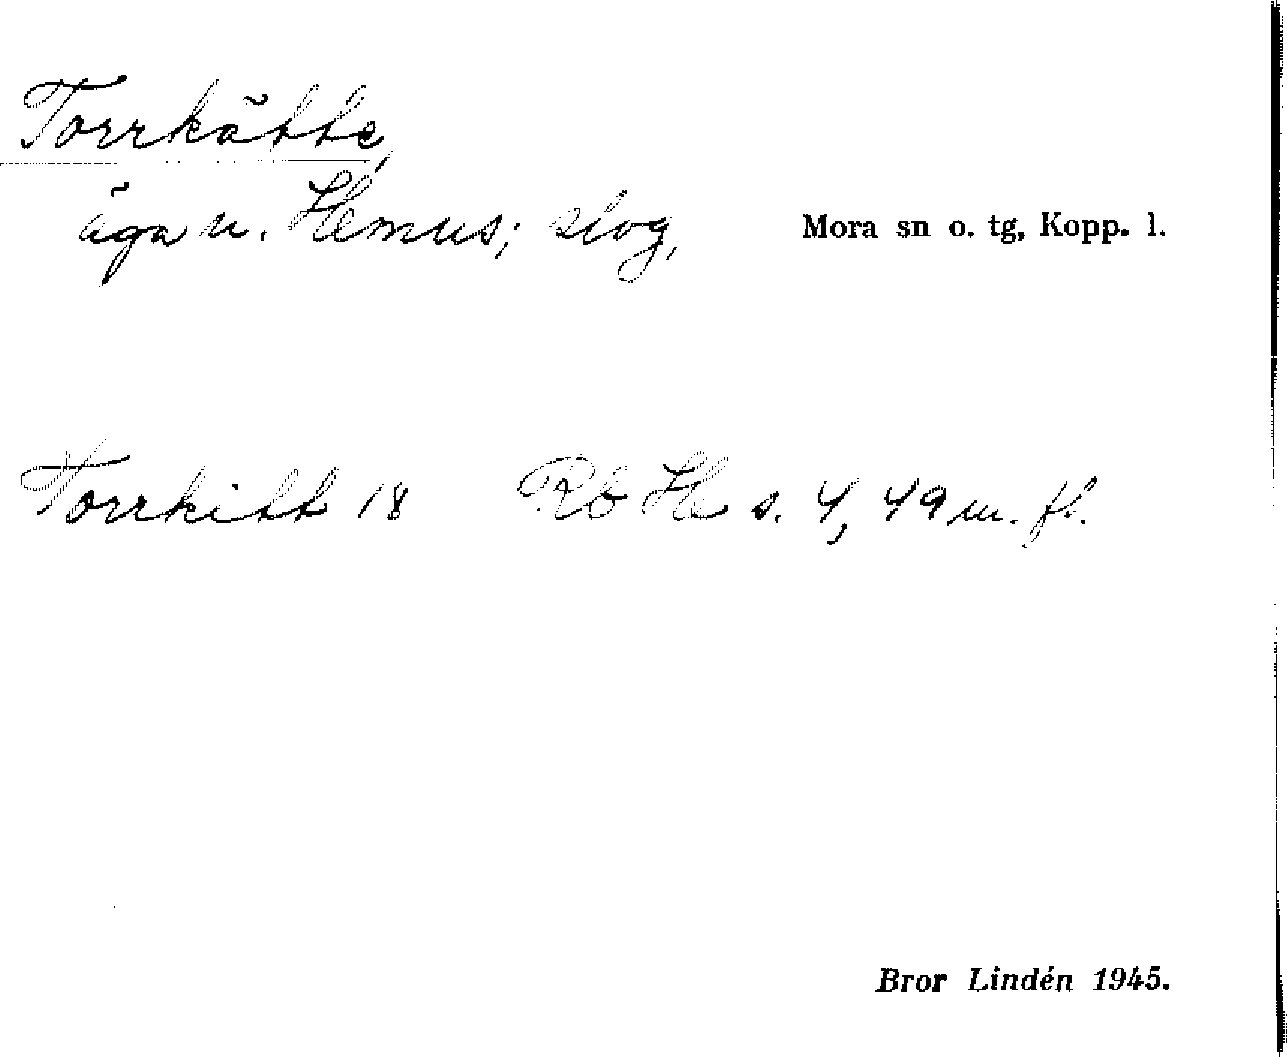 Torrkätte,
äga u. Hemus; slog,
Mora sn o. tg, Kopp. l.
Torrkitt 18 Rb He s. 4, 49 m. fl.
Bror Lindén 1945.